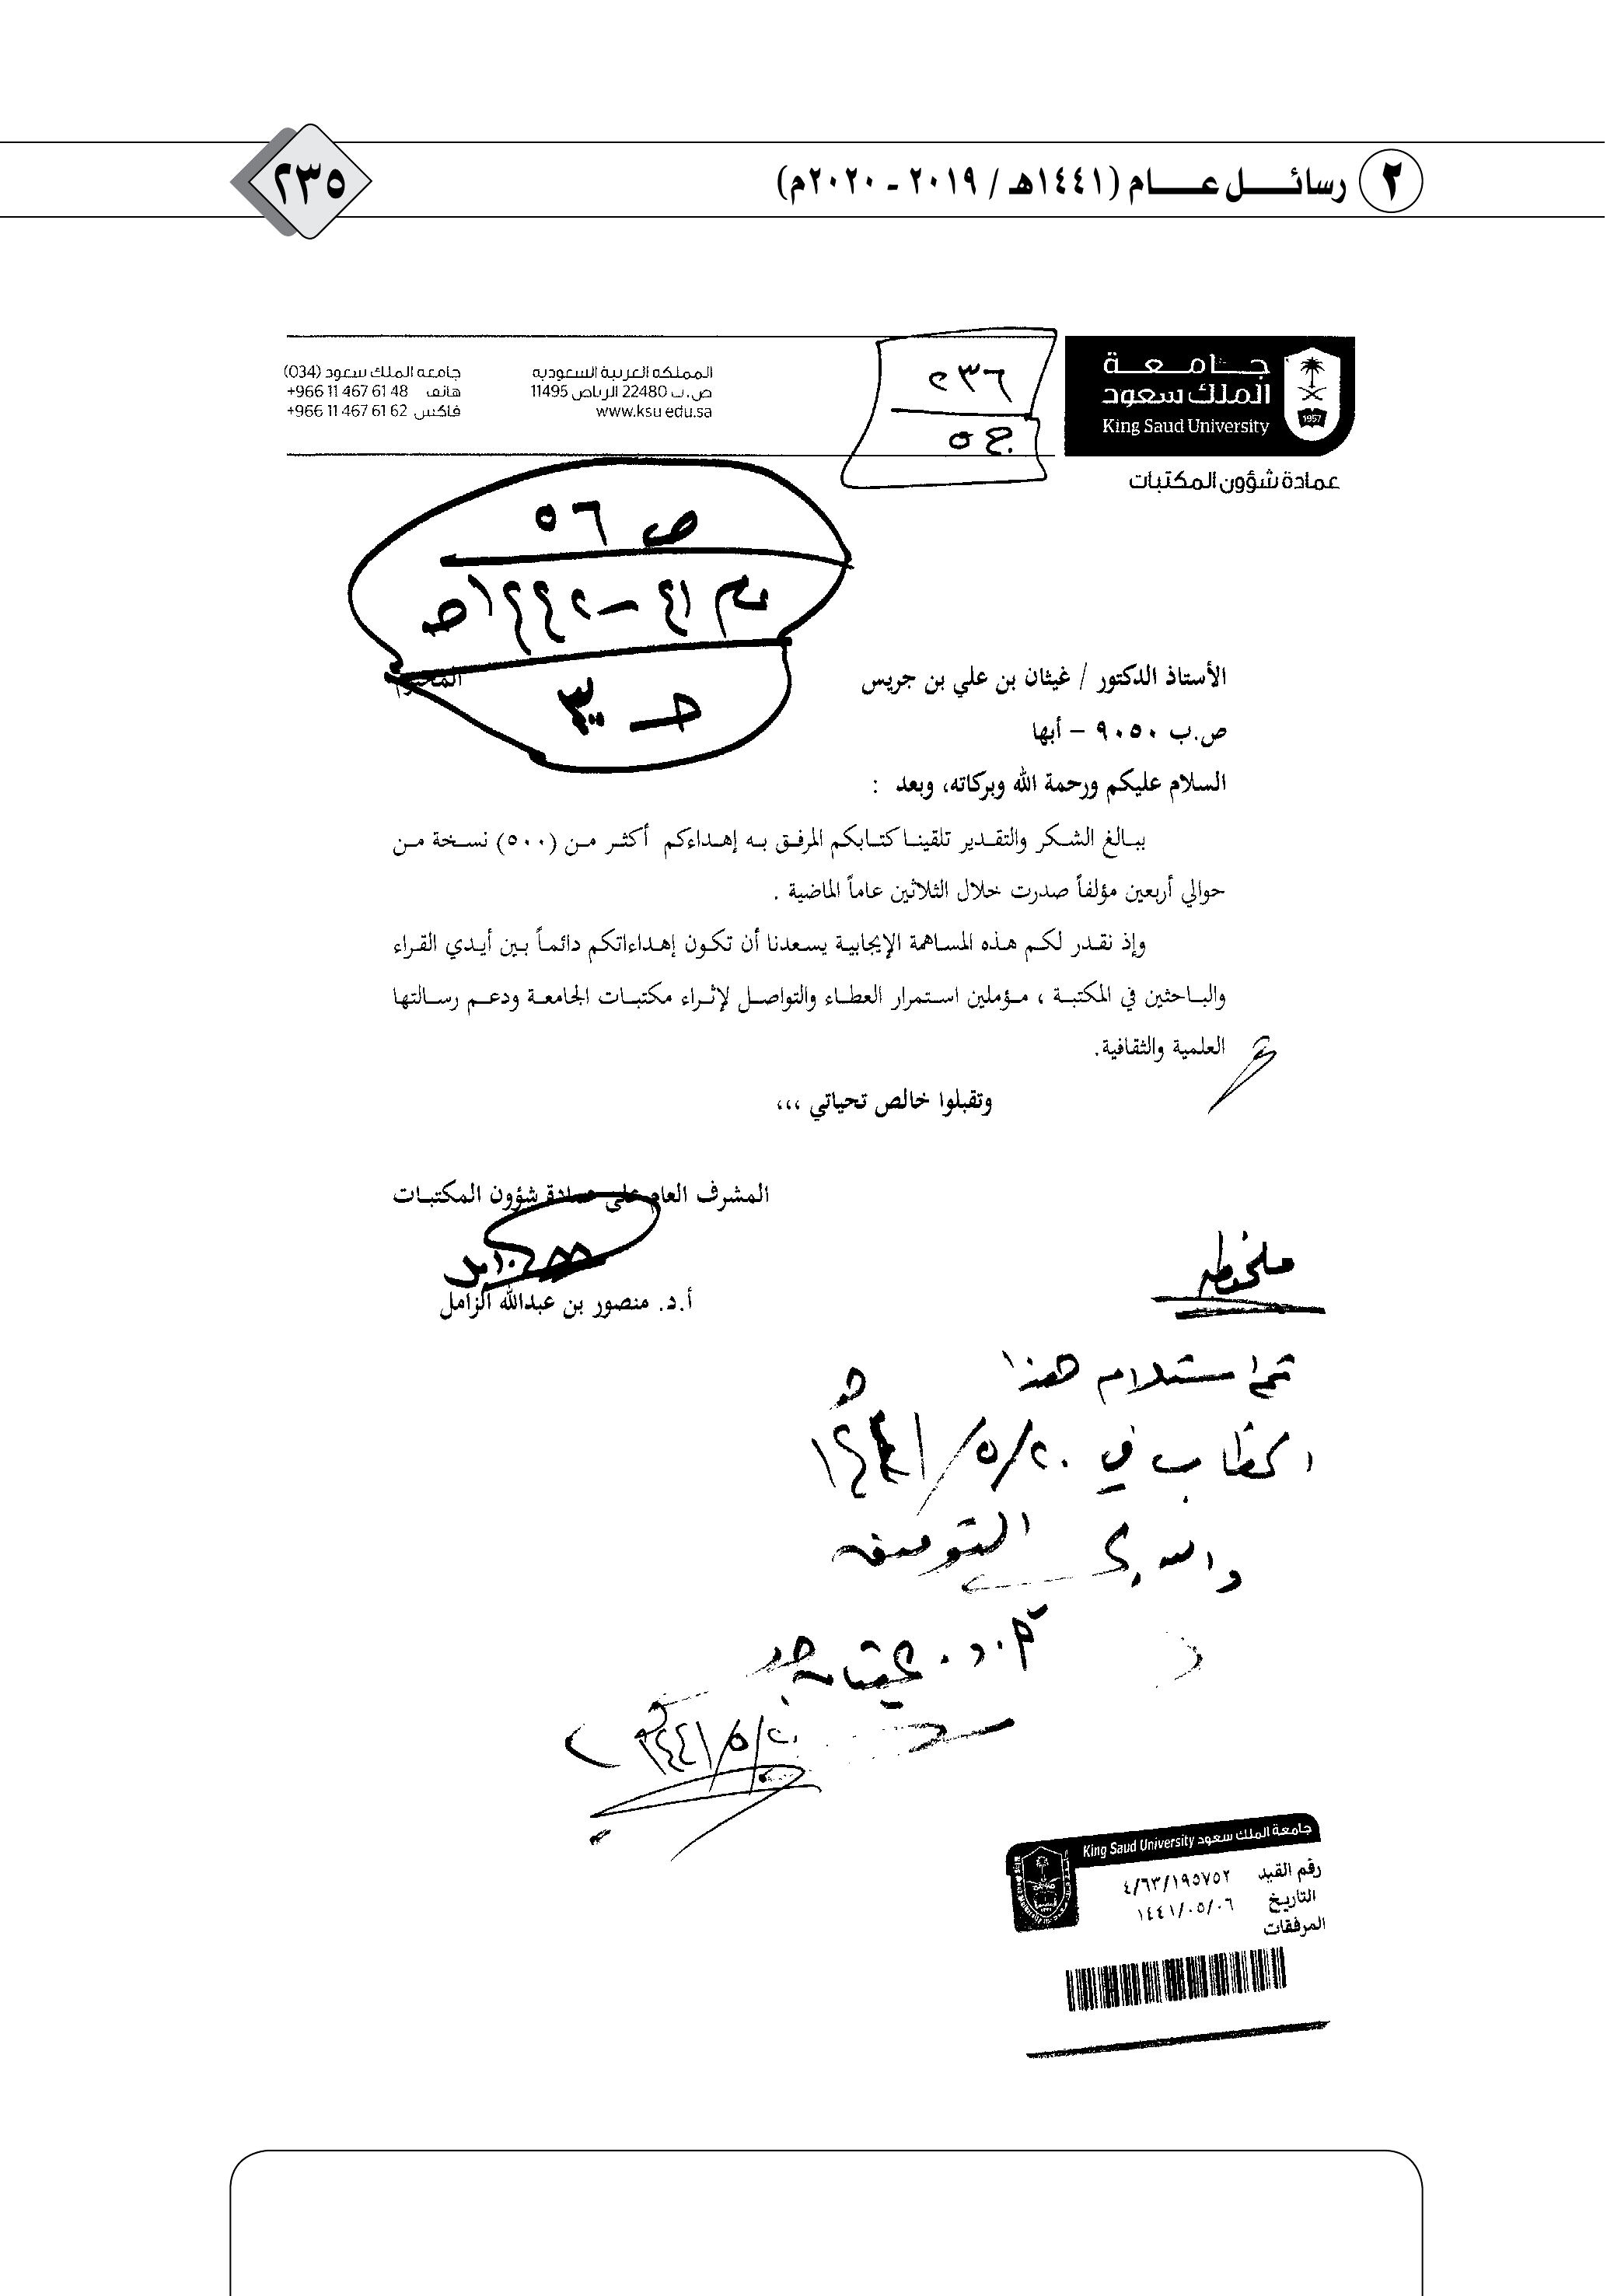 ٢ رسائل عام (١٤٤١هـ / ٢٠١٩ - ٢٠٢٠م)
٢٣٥
جامعة
الملك سعود
King Saud University
1957
عمادة شؤون المكتبات
٢٣٦
ج ٥
المملكة العربية السعودية
ص.ب 22480 الرياض 11495
www.ksu edu.sa
جامعة الملك سعود (034)
هاتف +966 11 467 61 48
فاكس +966 11 467 61 62
ص ٥٦
٤١ – ١٤٤٢هـ
الأستاذ الدكتور / غيثان بن علي بن جريس
ص.ب ٩٠٥٠ – أبها
السلام عليكم ورحمة الله وبركاته، وبعد :
ببالغ الشكر والتقدير تلقينا كتابكم المرفق به إهداءكم أكثر من (٥٠٠) نسخة من
حوالي أربعين مؤلفاً صدرت خلال الثلاثين عاماً الماضية .
وإذ نقدر لكم هذه المساهمة الإيجابية يسعدنا أن تكون إهداءاتكم دائماً بين أيدي القراء
والباحثين في المكتبة ، مؤملين استمرار العطاء والتواصل لإثراء مكتبات الجامعة ودعم رسالتها
العلمية والثقافية.
وتقبلوا خالص تحياتي ،،،
المشرف العام على عمادة شؤون المكتبات
أ.د. منصور بن عبدالله الزامل
ملحوظة
تم استلام هذا
الخطاب في ٢٠/٥/١٤٤١هـ
والله ولي التوفيق
أ.د. غيثان جريس
٢٠/٥/١٤٤١هـ
جامعة الملك سعود King Saud University
رقم القيد ٤/٦٣/١٩٥٧٥٢
التاريخ ١٤٤١/٠٥/٠٦
المرفقات